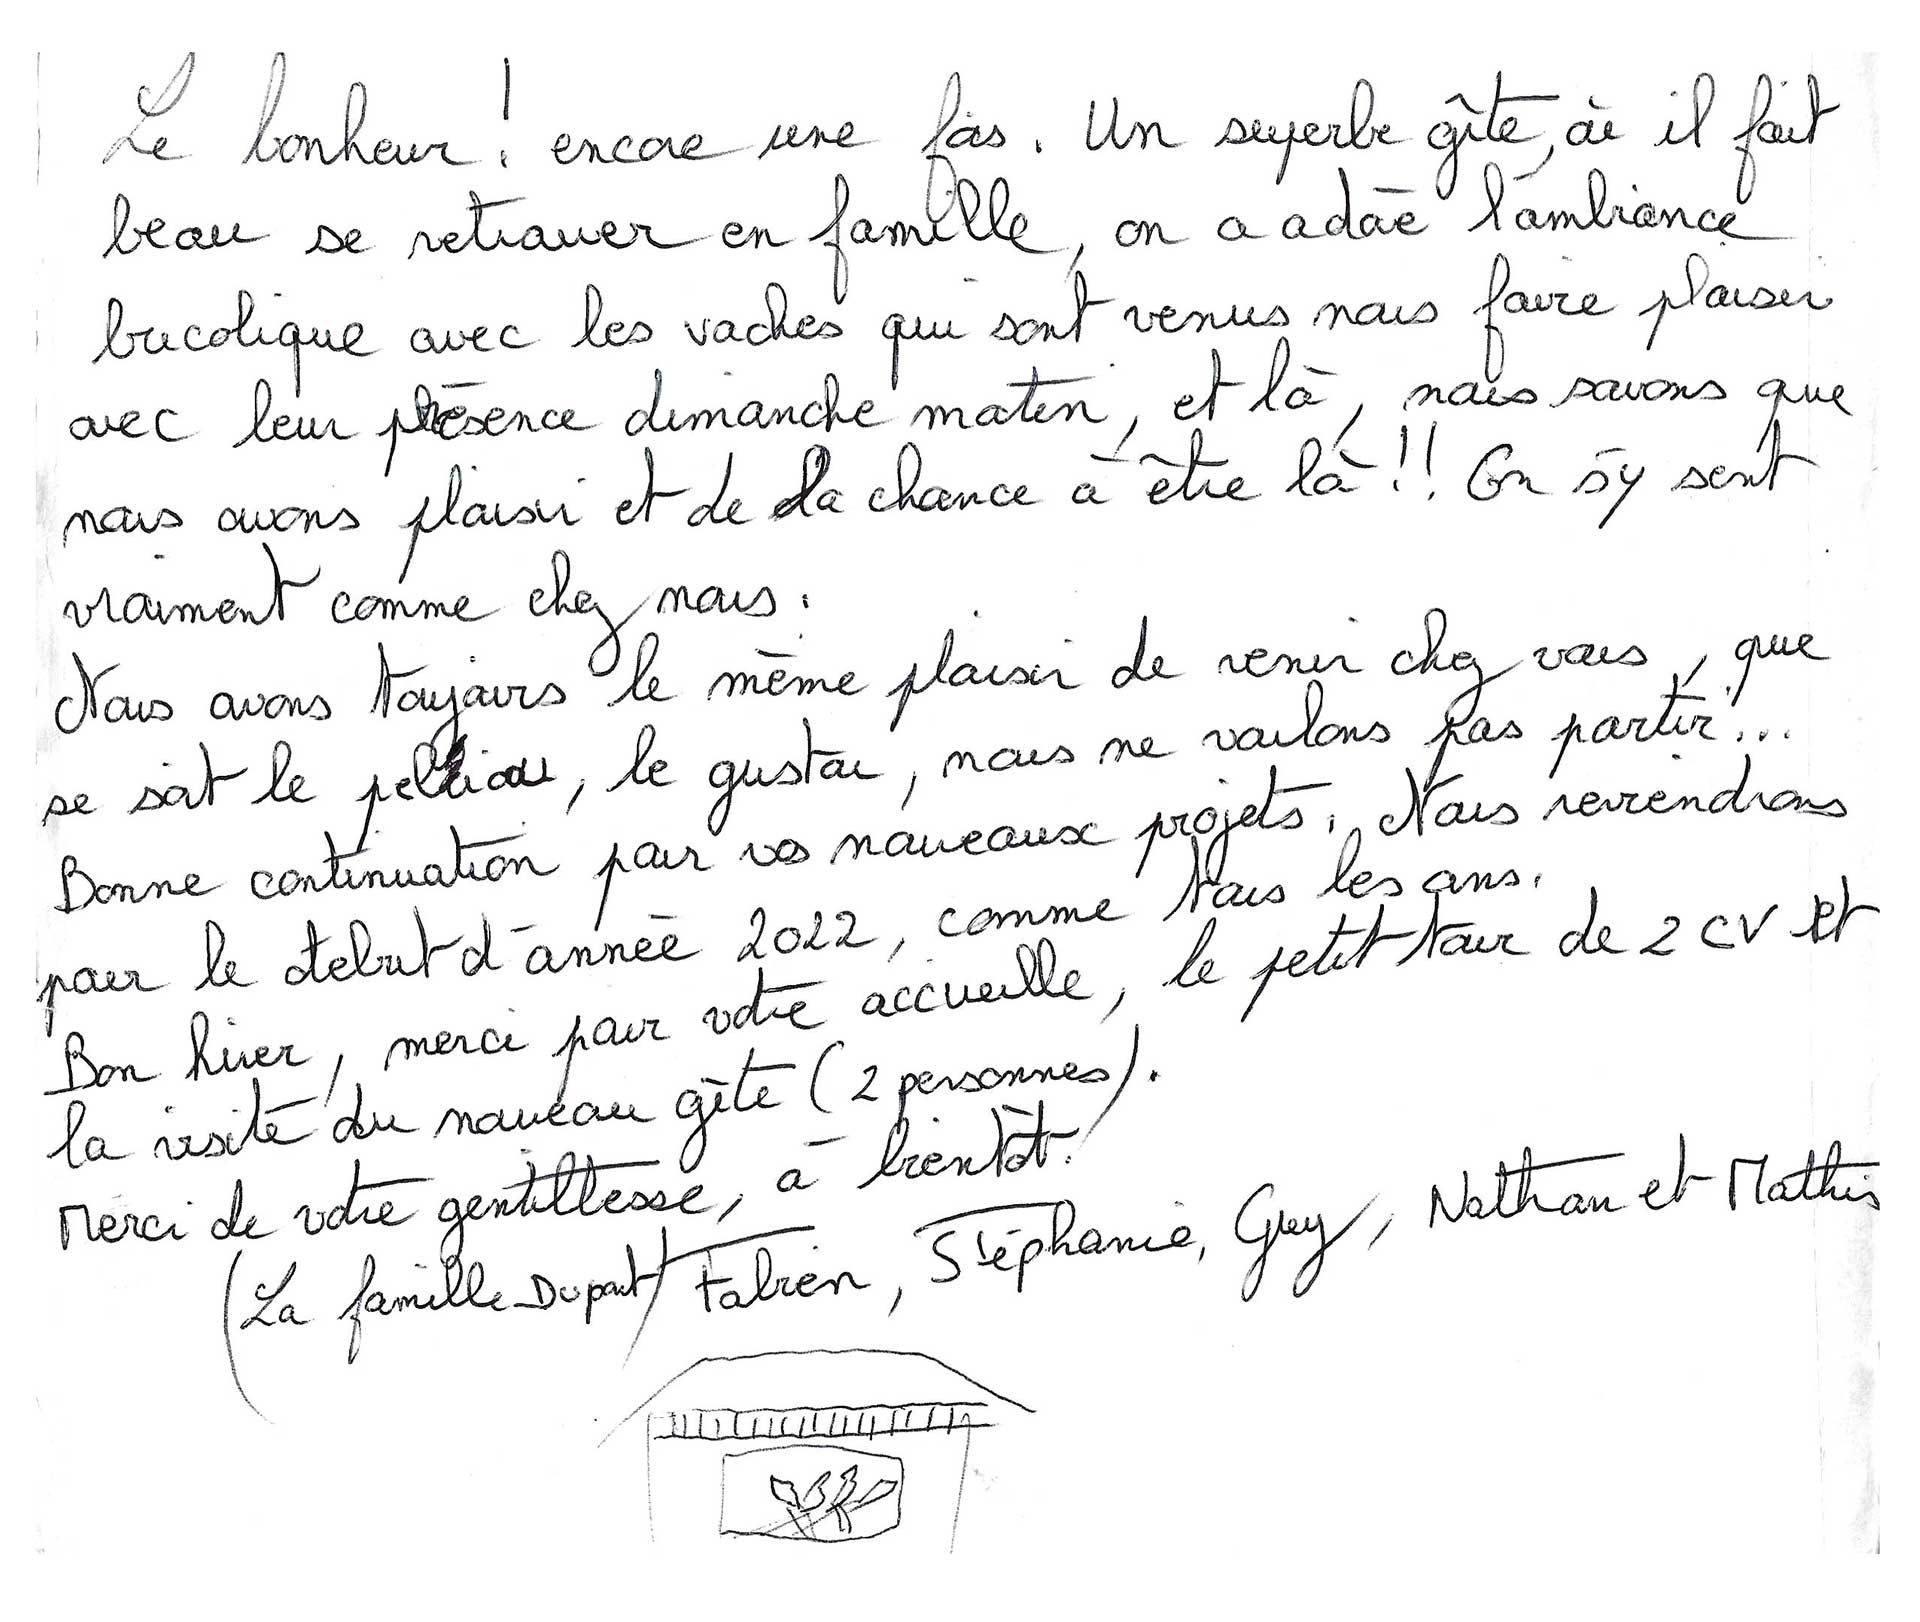 Le bonheur ! encore une fois. Un superbe gîte, où il fait
beau se retrouver en famille, on a adoré l'ambiance
bucolique avec les vaches qui sont venus nous faire plaisir
avec leur présence dimanche matin, et là, nous savons que
nous avons plaisir et de la chance à être là !! On s'y sent
vraiment comme chez nous.
Nous avons toujours le même plaisir de venir chez vous, que
se soit le pelliou, le gustou, nous ne voulons pas partir...
Bonne continuation pour vos nouveaux projets. Nous reviendrons
pour le debut d'année 2022, comme tous les ans.
Bon hiver, merci pour votre accueille, le petit tour de 2 CV et
la visite du nouveau gîte (2 personnes).
Merci de votre gentillesse, à bientôt.
(La famille Dupont) Fabien, Stéphanie, Guy, Nathan et Mathis